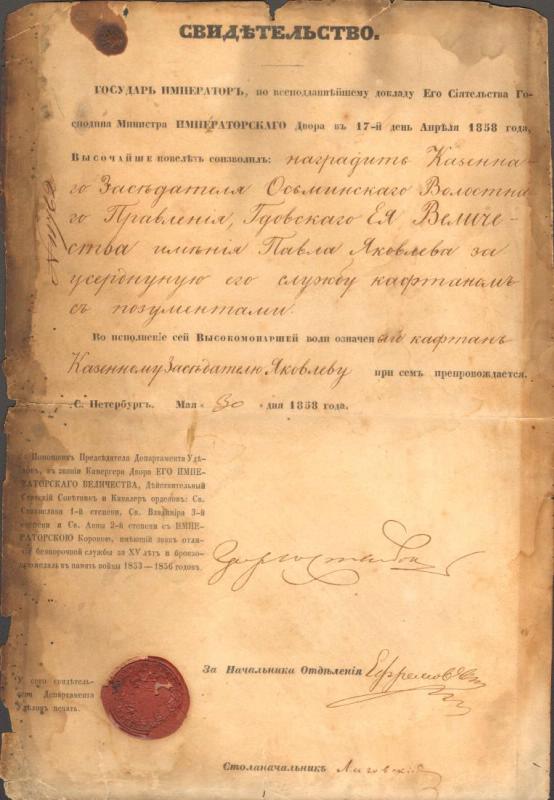 СВИДѢТЕЛЬСТВО.
ГОСУДАРЬ ИМПЕРАТОРЪ, по всеподданнѣйшему докладу Его Сіятельства Го-
сподина Министра ИМПЕРАТОРСКАГО Двора въ 17-й день Апрѣля 1858 года,
Высочайше повелѣть соизволилъ: наградить Казенна-
го Засѣдателя Осьминскаго Волостна-
го Правленія, Гдовскаго Ея Величе-
ства имѣнія Павла Яковлева за
усердную его службу кафтаномъ
съ позументами.
Во исполненіе сей Высокомонаршей воли означенный кафтанъ
Казенному Засѣдателю Яковлеву при семъ препровождается.
С. Петербургъ. Мая «30» дня 1858 года.
Помощникъ Предсѣдателя Департамента Удѣ-
ловъ, въ званіи Камергера Двора ЕГО ИМПЕ-
РАТОРСКАГО ВЕЛИЧЕСТВА, Дѣйствительный
Статскій Совѣтникъ и Кавалеръ орденовъ: Св.
Станислава 1-й степени, Св. Владиміра 3-й
степени и Св. Анны 2-й степени съ ИМПЕ-
РАТОРСКОЮ Короною, имѣющій знакъ отли-
чія безпорочной службы за XV лѣтъ и бронзо-
вую медаль въ память войны 1853—1856 годовъ
За Начальника Отдѣленія Ефремовъ
У сего свидѣтель-
ства Департамента
Удѣловъ печать.
Столоначальникъ Лиговскій